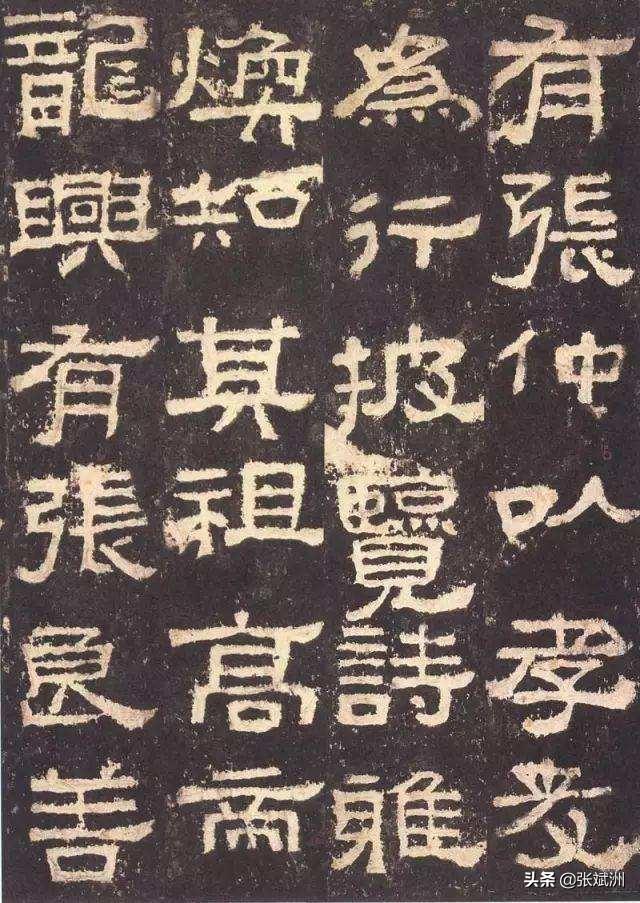 有張仲以孝友
為行披覽詩雅
煥知其祖高帝
龍興有張良善
头条 @张斌洲